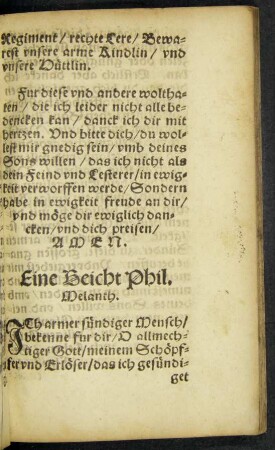 Regiment / rechte Lere / Bewa-
rest vnsere arme Kindlin / vnd
vnsere Hüttlin.
Fur diese vnd andere woltha-
ten / die ich leider nicht alle be-
dencken kan / danck ich dir mit
hertzen. Vnd bitte dich / du wol-
lest mir gnedig sein / vmb deines
Sons willen / das ich nicht als
dein Feind vnd Lesterer / in ewig-
keit verworffen werde / Sondern
habe in ewigkeit freude an dir /
vnd möge dir ewiglich dan-
cken / vnd dich preisen /
A M E N.
Eine Beicht Phil.
Melanth.
ICh armer sündiger Mensch /
bekenne für dir / O allmech-
tiger Gott / meinem Schöpf-
fer vnd Erlöser / das ich gesündi-
get